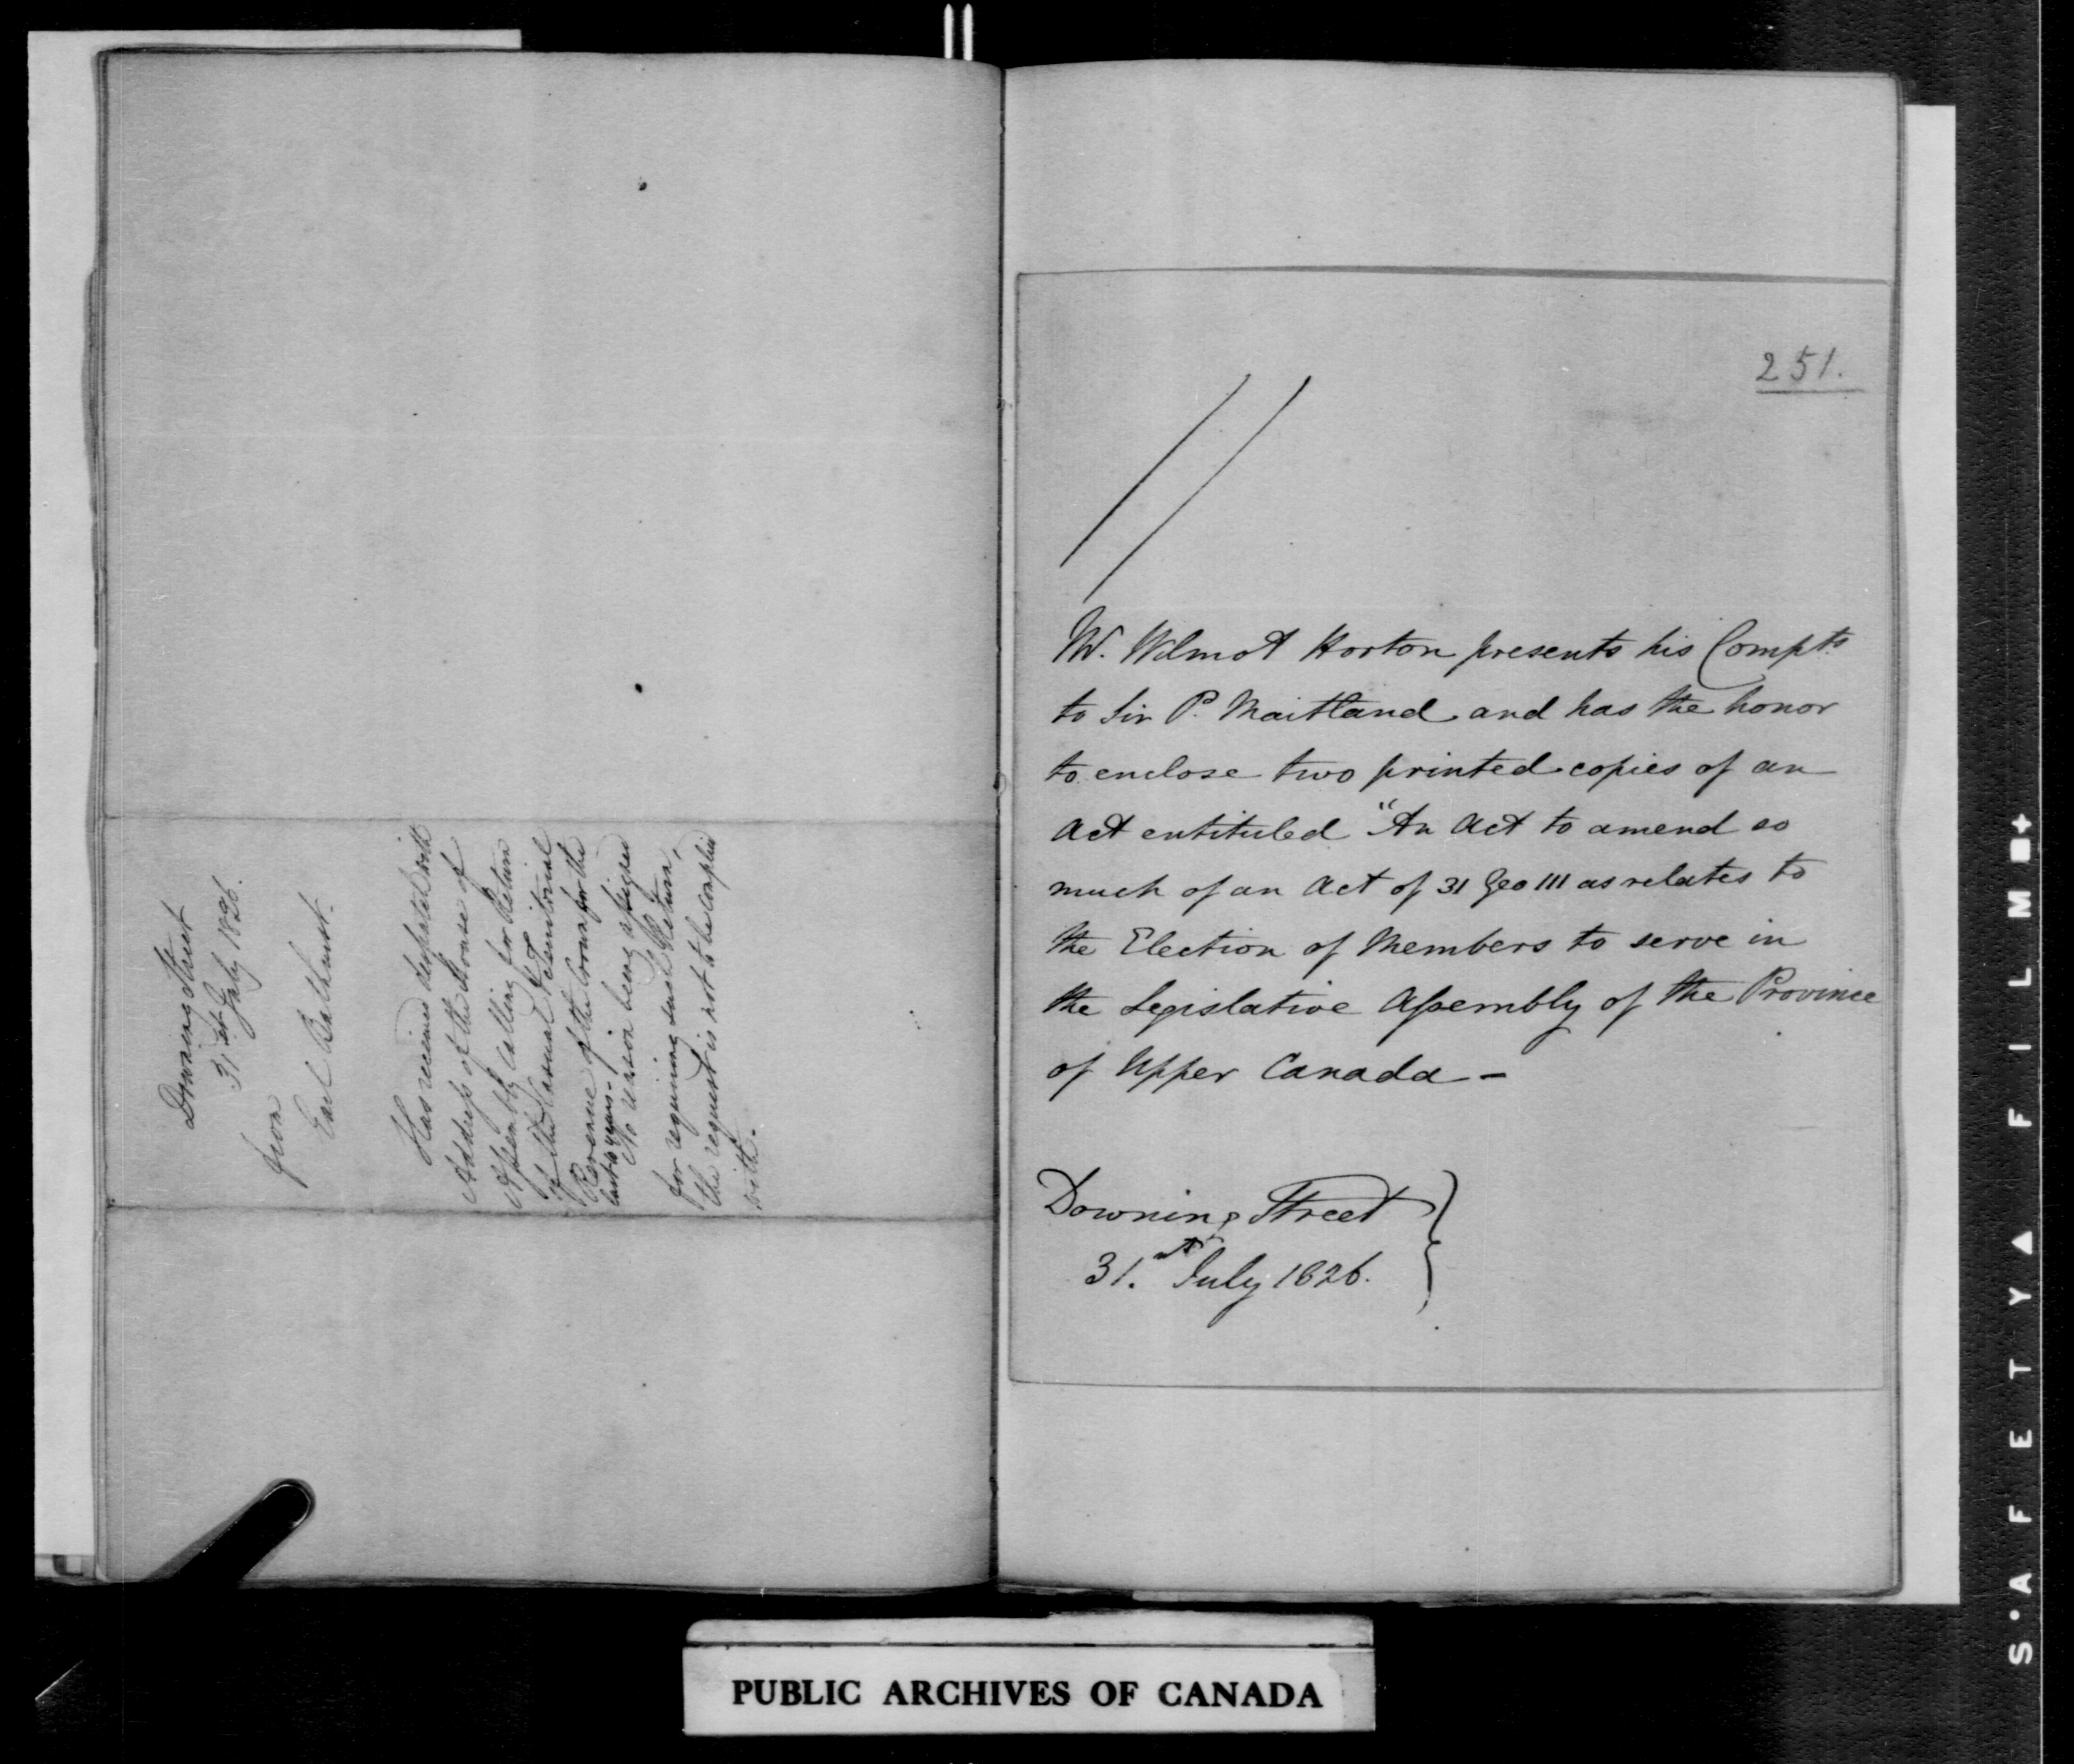 Downing Street
31st July 1826.
from
Earl Bathurst.
Has received despatch with
Address of the House of
Assembly calling for Return
of the Casual & Territorial
Revenue of the Crown for the
last years.
No reason being assigned
for requiring such Return,
the request is not to be complied
with.
251.
W. Wilmot Horton presents his Compts
to Sir P. Maitland and has the honor
to enclose two printed copies of an
Act entituled "An Act to amend so
much of an Act of 31 Geo III as relates to
the Election of Members to serve in
the Legislative Assembly of the Province
of Upper Canada -
Downing Street
31.st July 1826.
PUBLIC ARCHIVES OF CANADA
S.AFETY▲ FILM■+